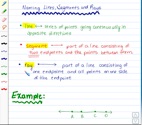 Naming Lines, Segments and Rays
• line → series of points going continually in opposite directions
• segment → part of a line consisting of two endpoints and the points between them
• Ray → part of a line consisting of one endpoint and all points on one side of the endpoint
Example:
A B C D